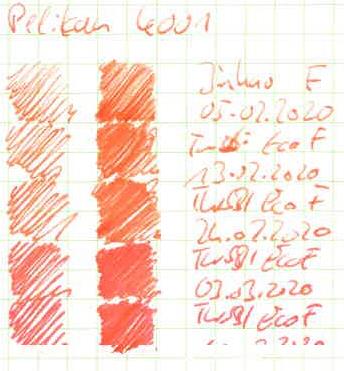 Pelikan 4001
Jinhao F
05.02.2020
Twsbi Eco F
13.02.2020
Twsbi Eco F
24.02.2020
Twsbi Eco F
03.03.2020
Twsbi Eco F